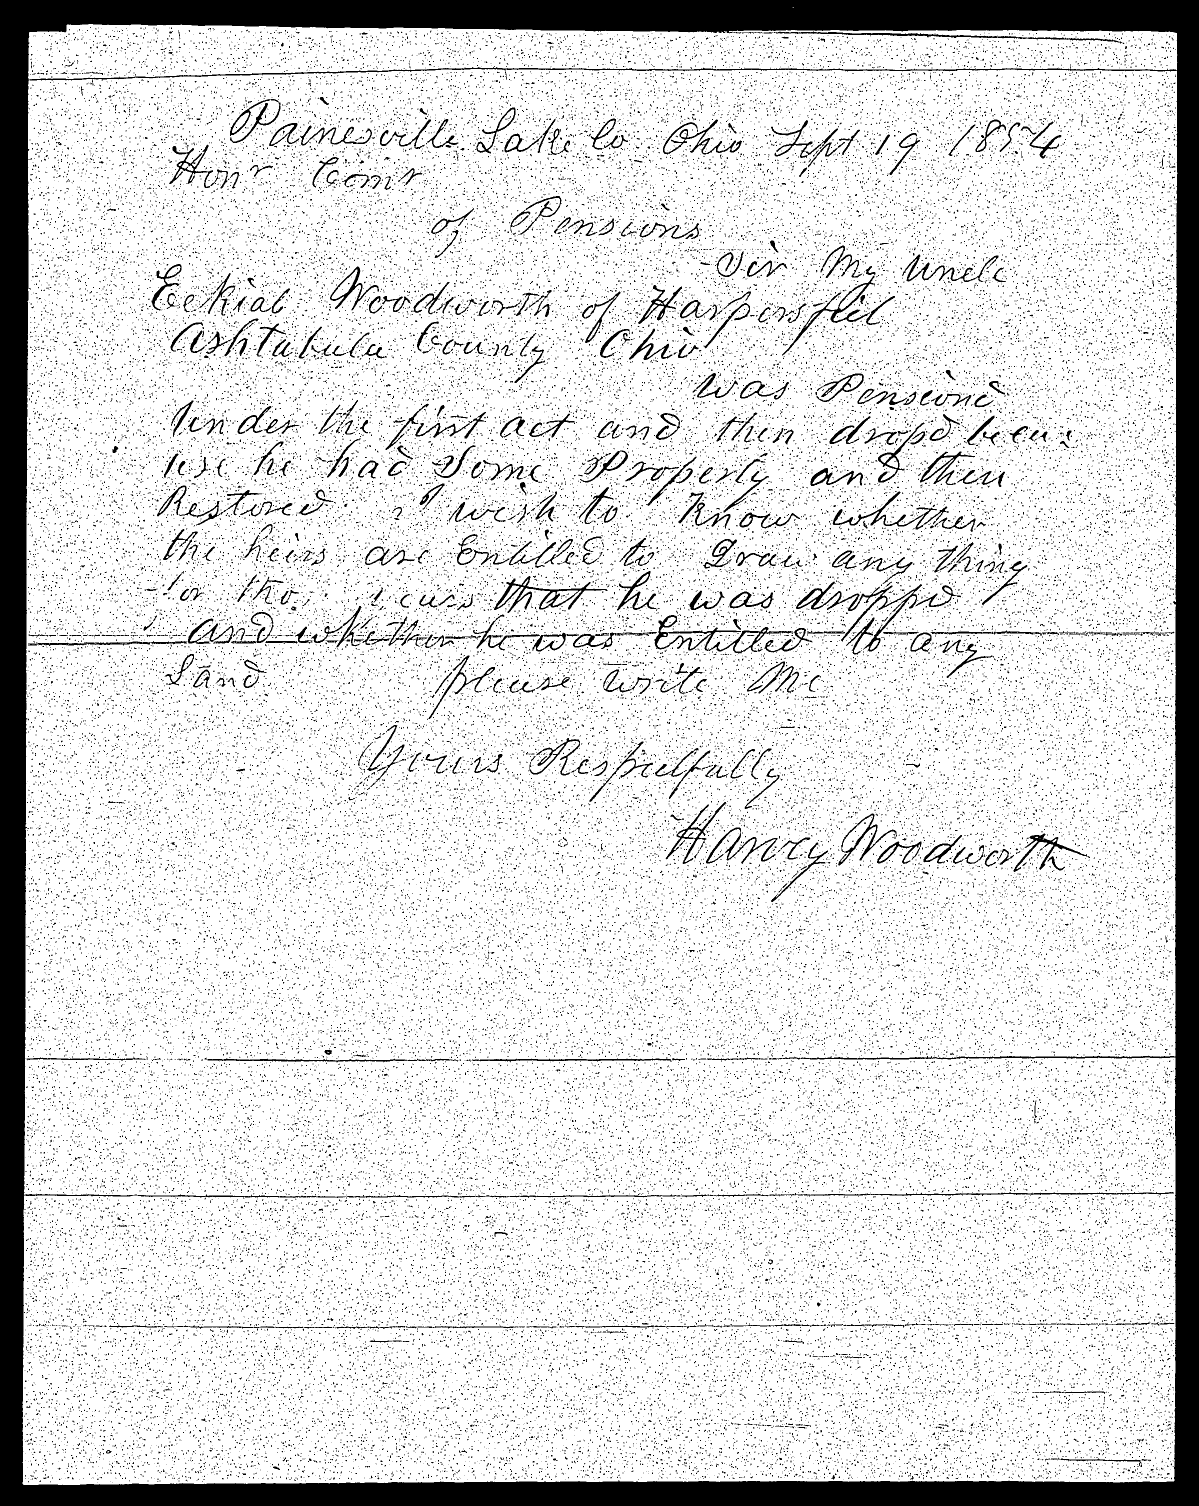 Painesville Lake Co Ohio Sept 19 1854
Honr Comr
of Pensions
Sir My Uncle
Eekial Woodworth of Harpersfiel
Ashtabula County Ohio
was Pensiond
Under the first act and then dropd becau:
use he had Some Property and then
Restored I wish to Know whether
the heirs are Entitled to Draw any thing
for years that he was droppd
and whether he was Entitled to any
Land please write Me
Yours Respectfully
Harvey Woodworth